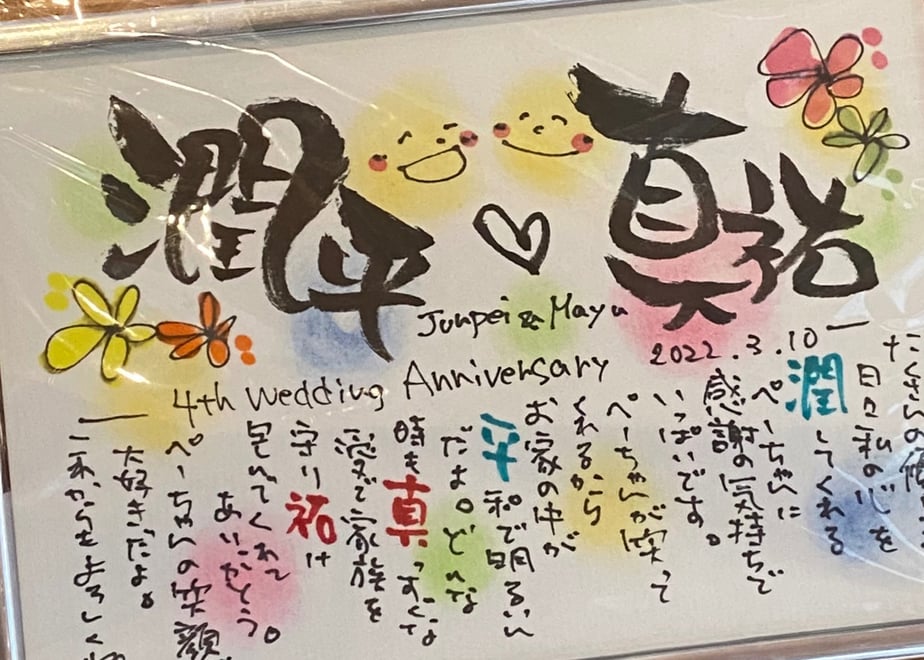 潤平 ♡ 真祐
Junpei & Mayu
2022.3.10
4th Wedding Anniversary
たくさんの優
日々私の心を
潤してくれる
ぺーちゃんに
感謝の気持ちで
いっぱいです。
ぺーちゃんが笑って
くれるから
お家の中が
平和で明るい
だよ。どんな
時も真っすぐな
愛で家族を
守り祐け
包んでくれて
ありがとう。
ぺーちゃんの笑顔
大好きだよ。
これからもよろしくね